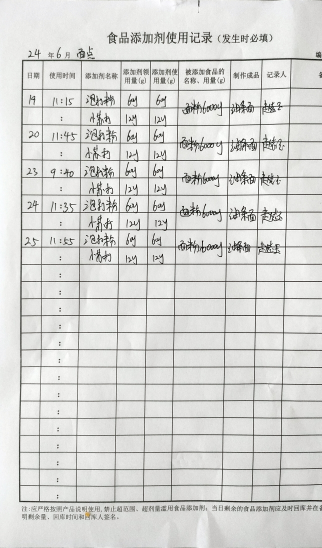 食品添加剂使用记录(发生时必填)
24 年 6 月 面点
日期 使用时间 添加剂名称 添加剂领用量(g) 添加剂使用量(g) 被添加食品的名称、用量(g) 制作成品 记录人
19 11:15 泡打粉 60g 60g 面粉6000g 油条面
小苏打 12g 12g
20 11:45 泡打粉 60g 60g 面粉6000g 油条面
小苏打 12g 12g
23 9:40 泡打粉 60g 60g 面粉6000g 油条面
小苏打 12g 12g
24 11:35 泡打粉 60g 60g 面粉6000g 油条面
小苏打 12g 12g
25 11:55 泡打粉 60g 60g 面粉6000g 油条面
小苏打 12g 12g
:
:
:
:
:
:
:
:
:
:
:
注:应严格按照产品说明使用,禁止超范围、超剂量滥用食品添加剂;当日剩余的食品添加剂应及时回库并在备
明剩余量、回库时间和回库人签名。